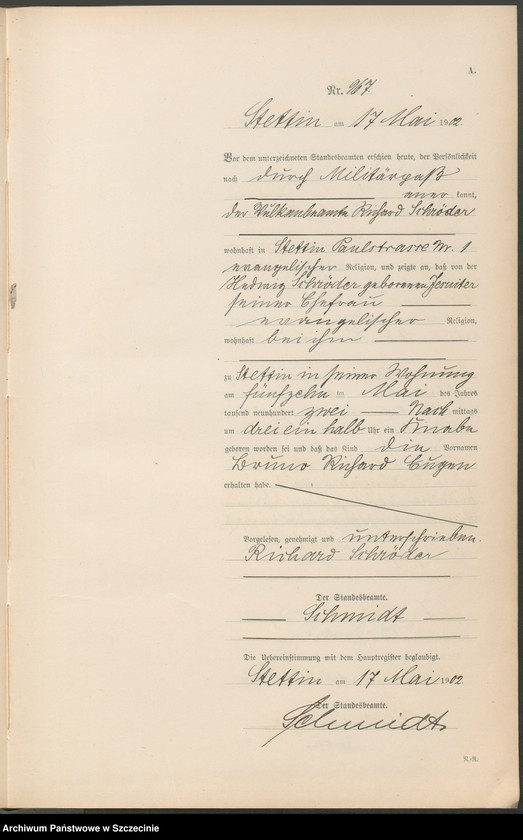 A.
Nr. 967
Stettin am 17 Mai 1902
Vor dem unterzeichneten Standesbeamten erschien heute, der Persönlichkeit
nach durch Militärpaß
aner kannt,
der Vulkanbeamte Richard Schröder
wohnhaft in Stettin Paulstrasse Nr. 1
evangelischer Religion, und zeigte an, daß von der
Hedwig Schröder geborenen
seiner Ehefrau
evangelischer Religion,
wohnhaft bei ihm
zu Stettin in seiner Wohnung
am fünfzehn ten Mai des Jahres
tausend neunhundert zwei Nach mittags
um drei ein halb Uhr ein Knabe
geboren worden sei und daß das Kind die Vornamen
Bruno Richard Eugen
erhalten habe.
Vorgelesen, genehmigt und unterschrieben.
Richard Schröder
Der Standesbeamte.
Schmidt
Die Uebereinstimmung mit dem Hauptregister beglaubigt.
Stettin am 17 Mai 1902
Der Standesbeamte.
Schmidt
R.-R.
Archiwum Państwowe w Szczecinie